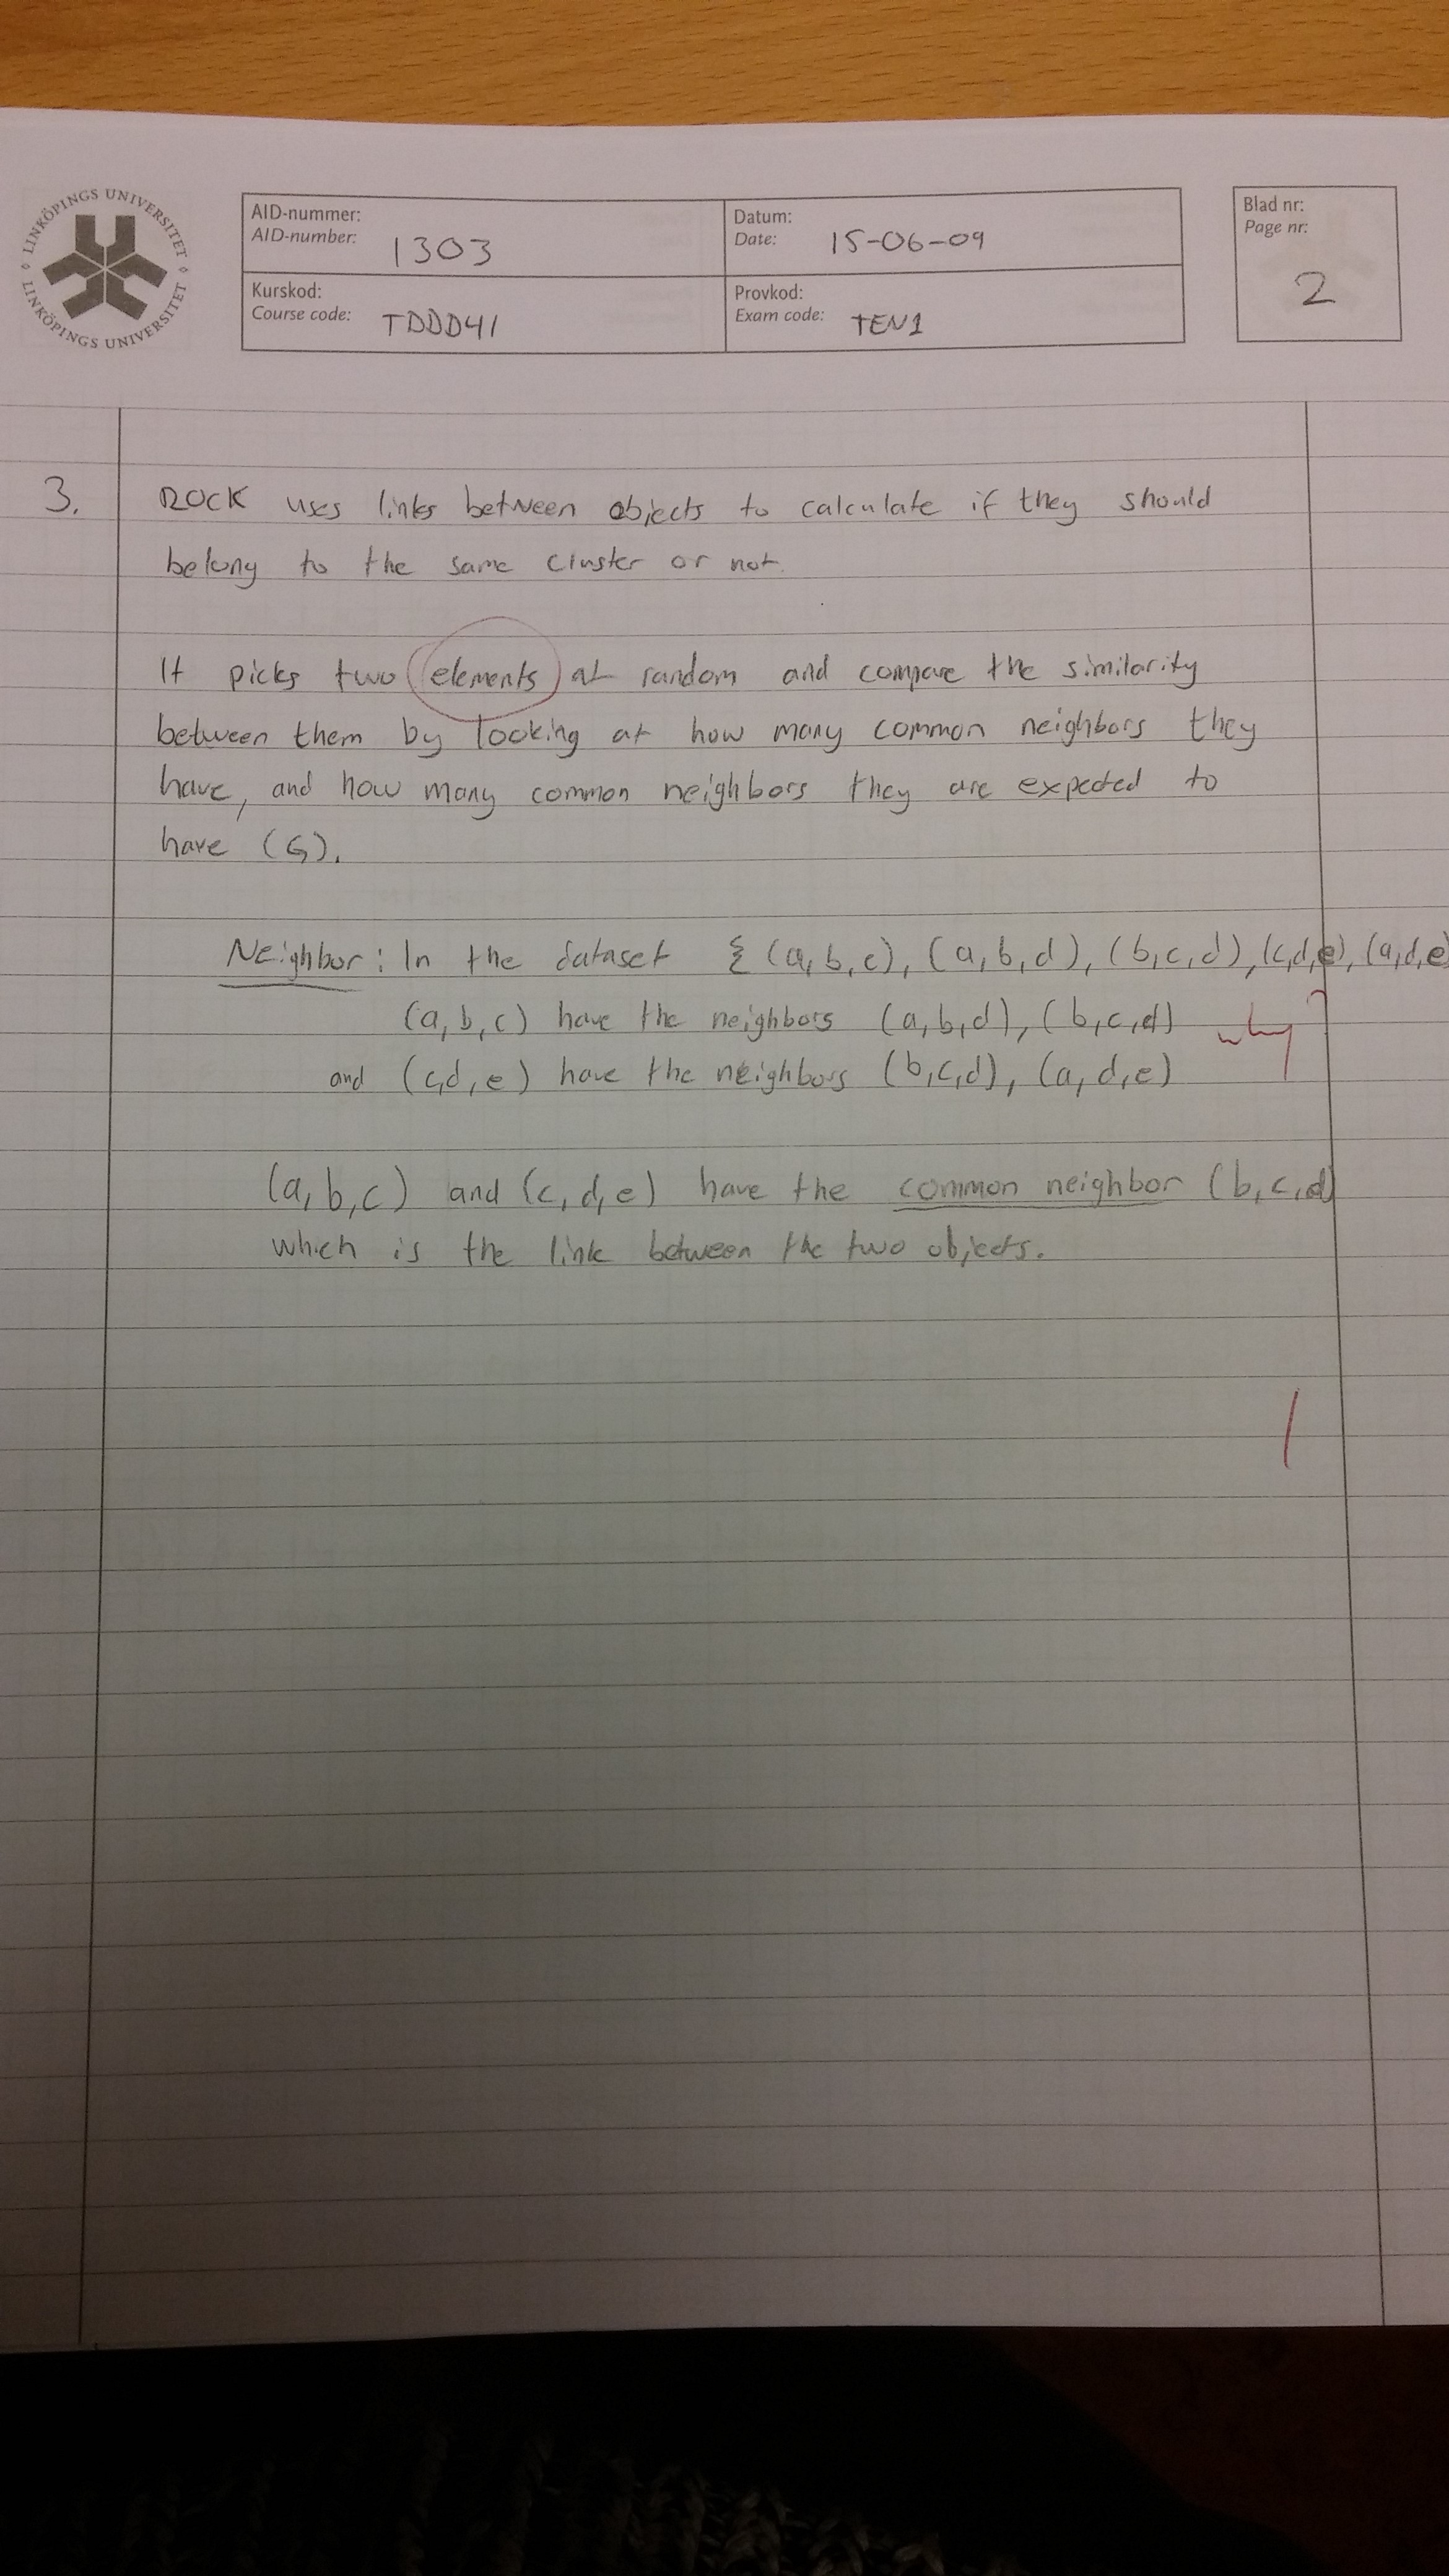 LINKÖPINGS UNIVERSITET
LINKÖPINGS UNIVERSITET
AID-nummer:
AID-number: 1303
Datum:
Date: 15-06-09
Blad nr:
Page nr:
2
Kurskod:
Course code: TDDD41
Provkod:
Exam code: TEN1
3. ROCK uses links between objects to calculate if they should
belong to the same cluster or not.
It picks two elements at random and compare the similarity
between them by looking at how many common neighbors they
have, and how many common neighbors they are expected to
have (G).
Neighbor: In the dataset { (a,b,c), (a,b,d), (b,c,d), (c,d,e), (a,d,e
(a,b,c) have the neighbors (a,b,d), (b,c,d) why?
and (c,d,e) have the neighbors (b,c,d), (a,d,e)
(a,b,c) and (c,d,e) have the common neighbor (b,c,d)
which is the link between the two objects.
1